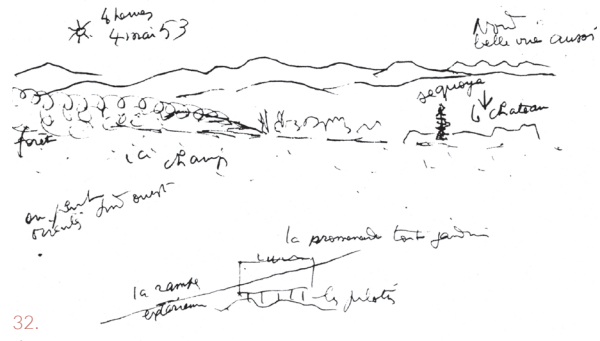 4 heures
4 mai 53
Nord
belle vue aussi
sequoya
le chateau
forêt
ici champ
en pente sud ouest
la promenade toit jardin
la rampe
extérieure
les pilotis
32.